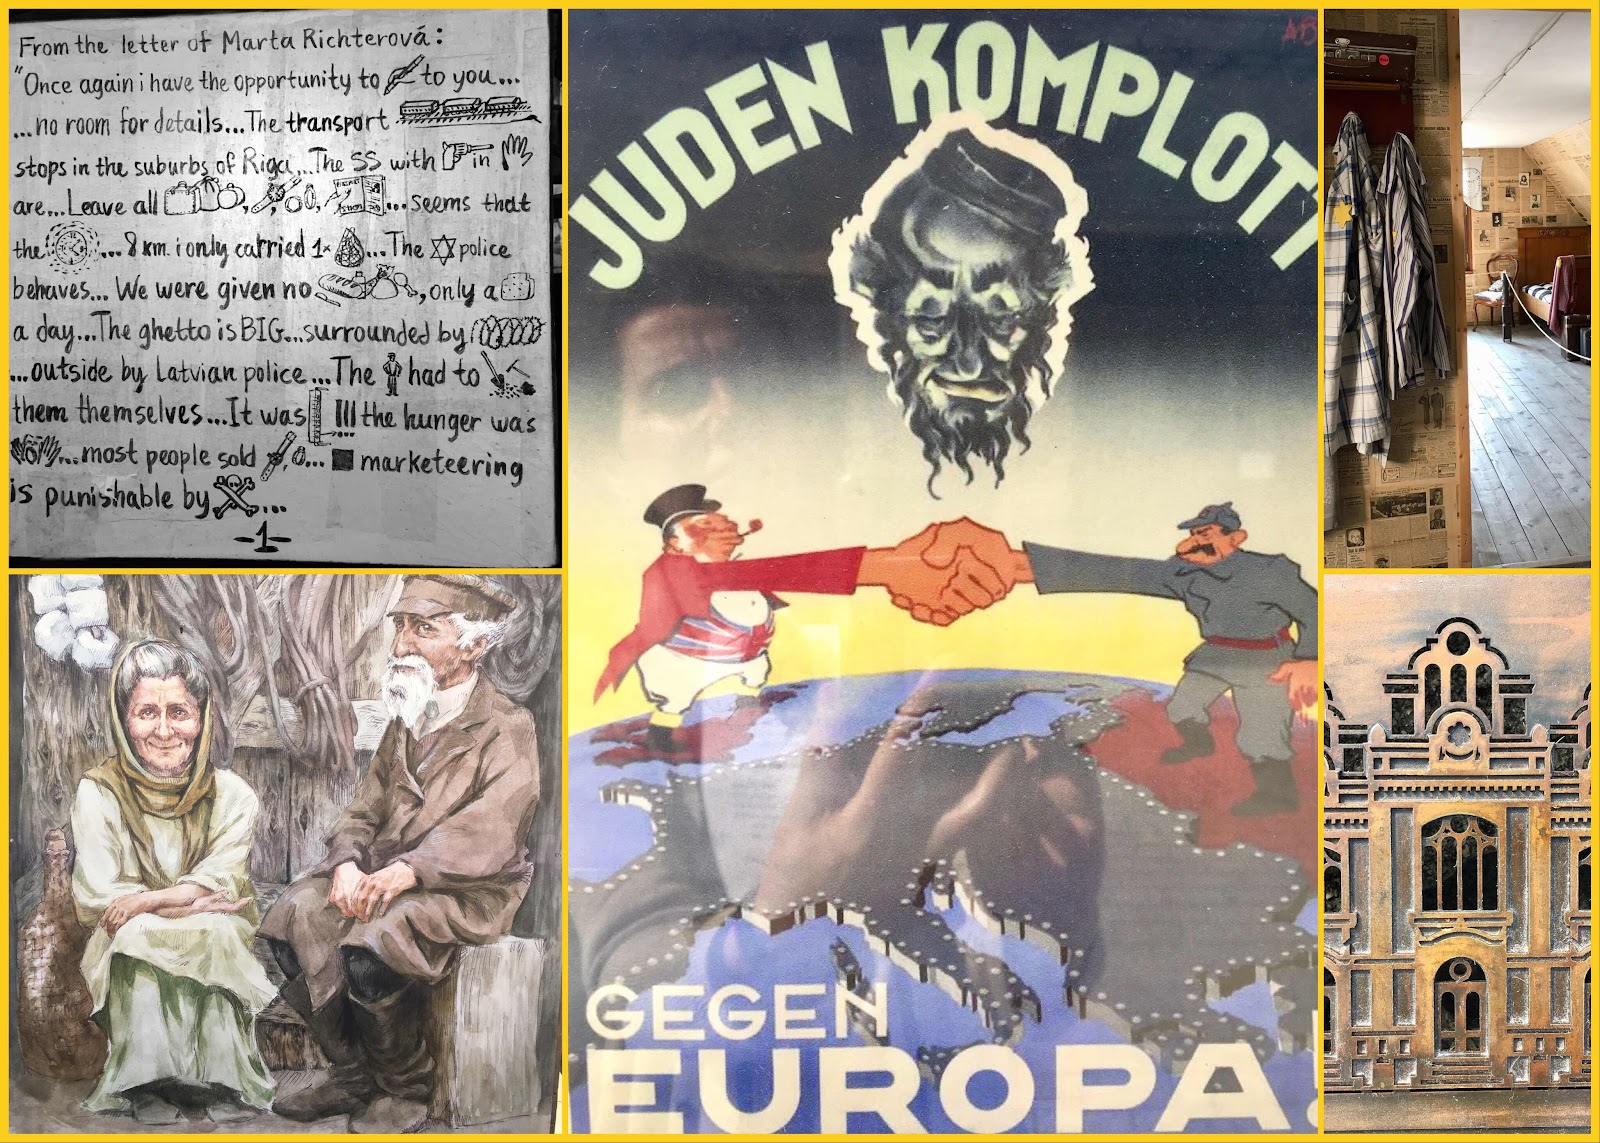 From the letter of Marta Richterová:
"Once again i have the opportunity to to you...
...no room for details...The transport
stops in the suburbs of Riga...The SS with in
are...Leave all , , , ...seems that
the ...8 km. i only carried 1× ...The police
behaves... We were given no , only a
a day...The ghetto is BIG...surrounded by
...outside by Latvian police...The had to
them themselves...It was !!! the hunger was
...most people sold , ... marketeering
is punishable by ...
-1-
JUDEN KOMPLOTT
GEGEN
EUROPA!